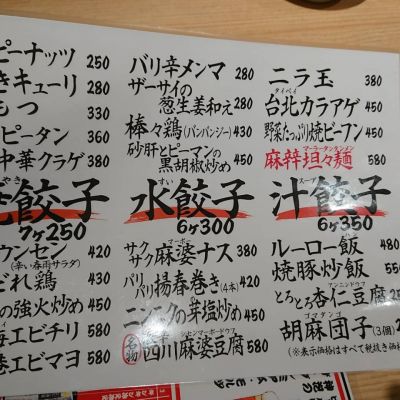 ピーナッツ 250
きキューリ 280
もつ 330
ピータン 360
中華クラゲ 380
やき
餃子
7ヶ250
ウンセン 420
(辛い春雨サラダ)
だれ鶏 430
の強火炒め 450
エビチリ 580
エビマヨ 580
バリ辛メンマ 280
ザーサイの
葱生姜和え 280
棒々鶏(バンバンジー) 430
砂肝とピーマンの
黒胡椒炒め 450
すい
水餃子
6ヶ300
サクサク麻婆ナス 380
マーボー
パリパリ揚春巻き(4本) 420
ニンニクの芽塩炒め 450
名物
四川麻婆豆腐 580
シセンマーボードウフ
ニラ玉 380
タイペイ
台北カラアゲ 450
野菜たっぷり焼ビーフン 450
マーラータンタンメン
麻辣坦々麺 580
スープ
汁餃子
6ヶ350
ルーロー飯 480
焼豚炒飯 550
アンニンドウフ
とろとろ杏仁豆腐
ゴマダンゴ
胡麻団子(3個)
(※表示価格はすべて税抜き価格